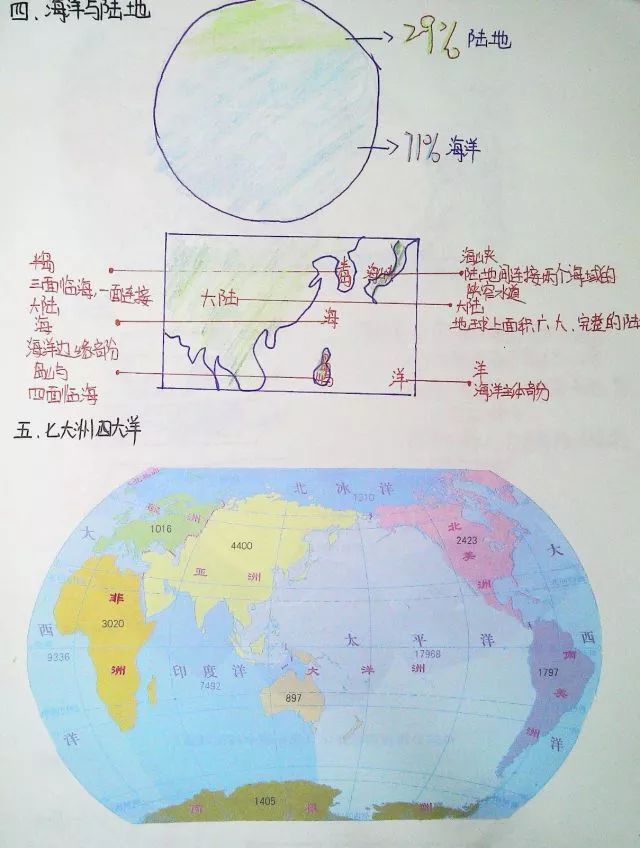 四、海洋与陆地
29% 陆地
71% 海洋
半岛
三面临海,一面连接
大陆
海
海洋边缘部分
岛屿
四面临海
大陆
半岛
海峡
海
岛
洋
海峡
陆地间连接两个海域的
狭窄水道
大陆
地球上面积广大、完整的陆
洋
海洋主体部分
五、七大洲四大洋
北冰洋
1310
欧洲
1016
亚洲
4400
非洲
3020
北美洲
2423
南美洲
1797
大洋洲
897
南极洲
1405
太平洋
17968
印度洋
7492
大西洋
9336
大西洋